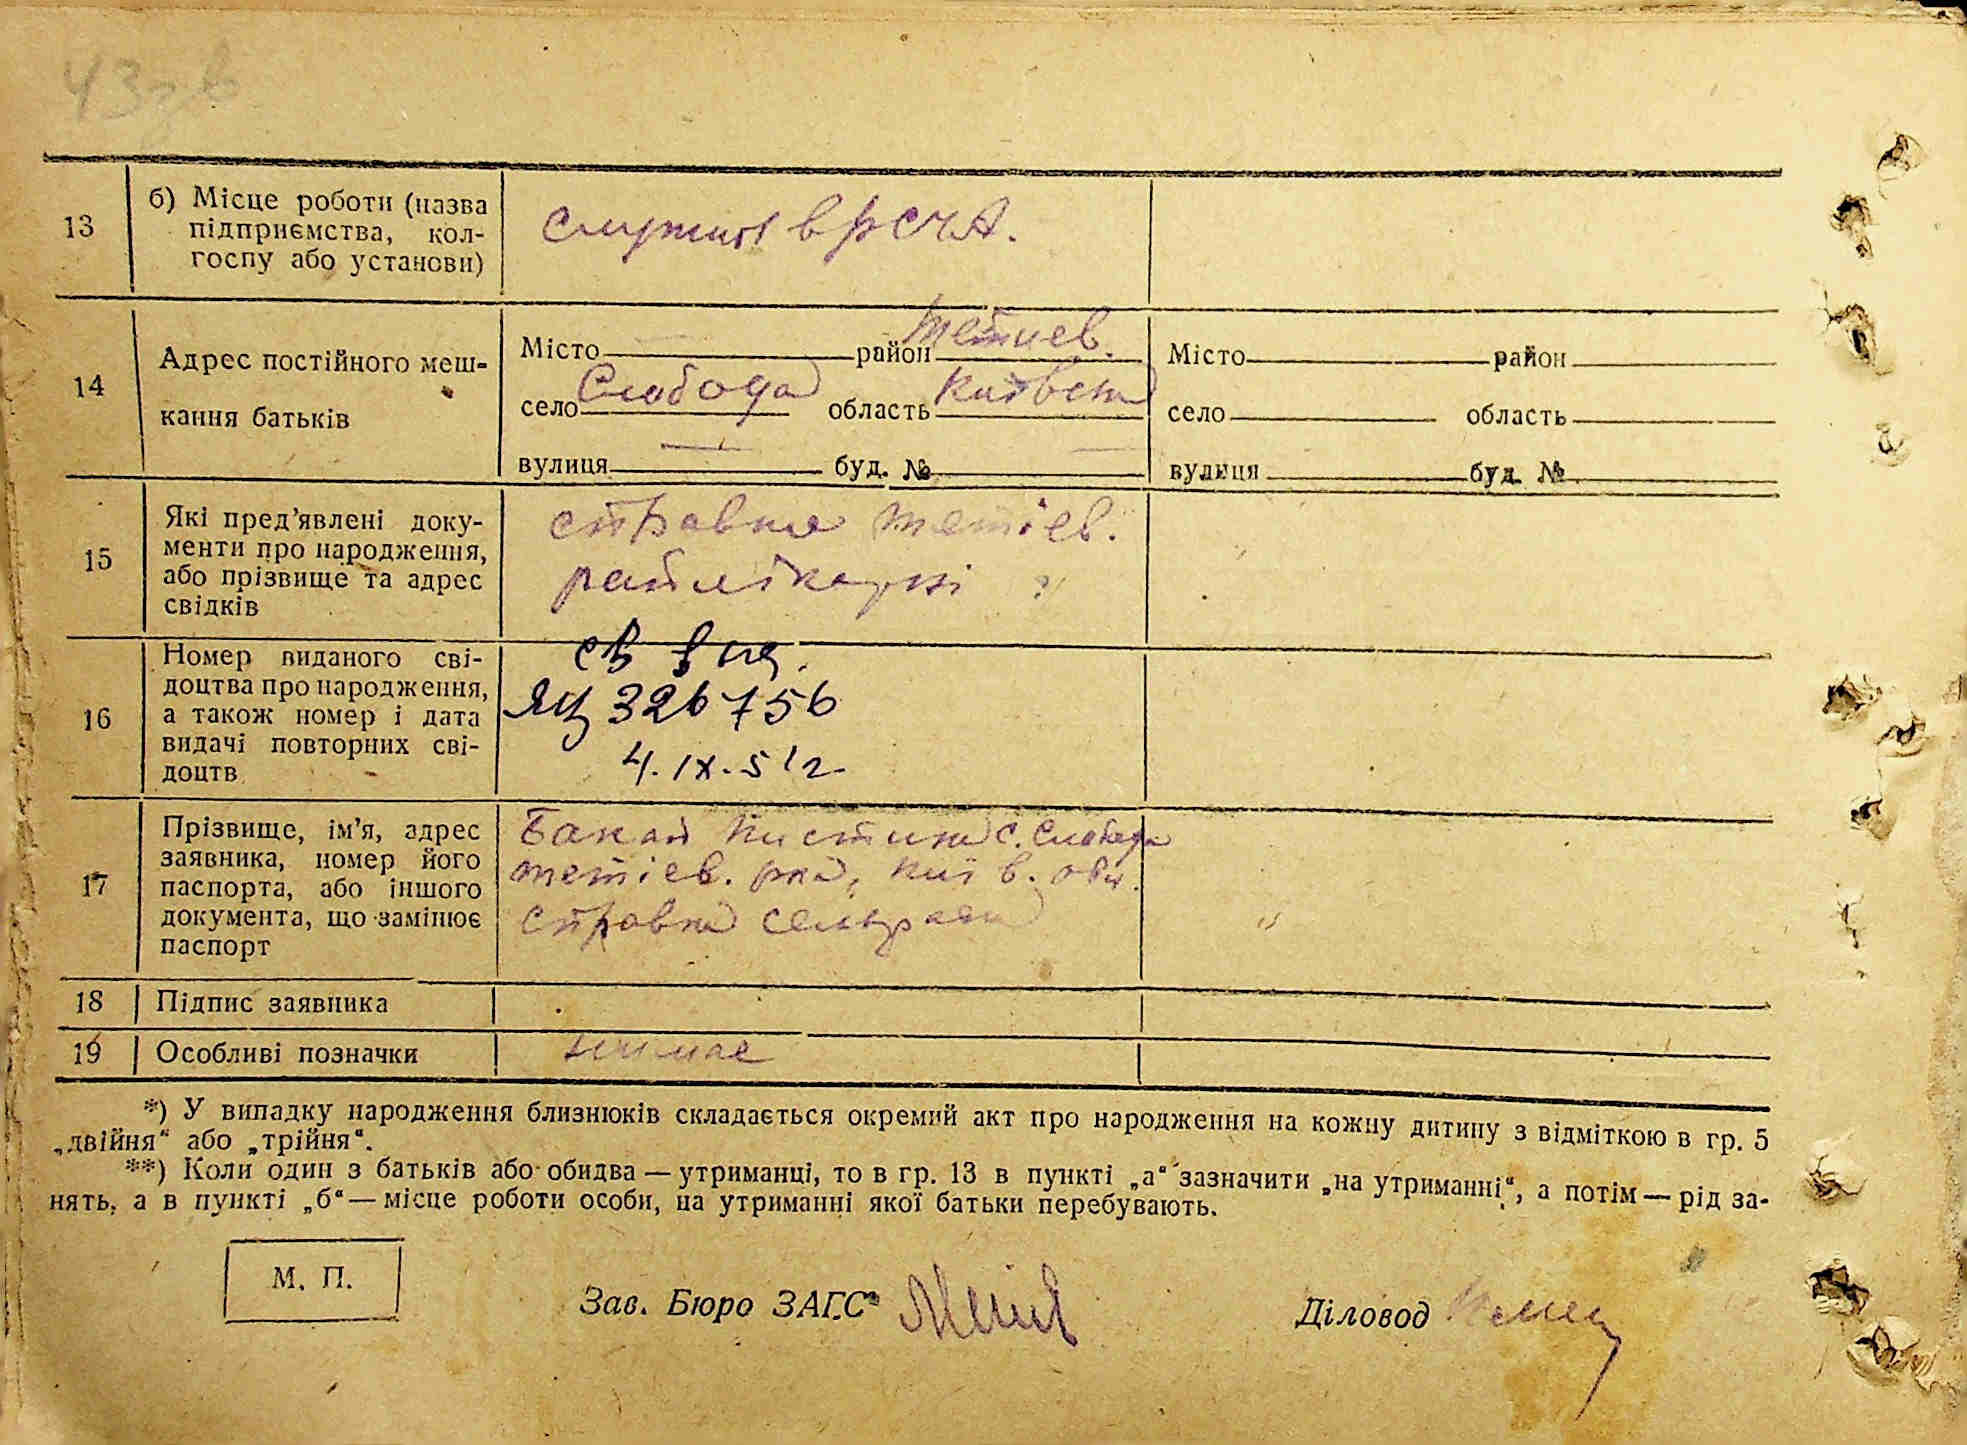 43зв
13
б) Місце роботи (назва
підприємства, кол-
госпу або установи)
служит в РСЧА.
14
Адрес постійного меш-
кання батьків
Місто район Тетиев.
село Слобода область Київська
вулиця — буд. № —
Місто район
село область
вулиця буд. №
15
Які пред'явлені доку-
менти про народження,
або прізвище та адрес
свідків
справка тетіев.
райлікарні
16
Номер виданого сві-
доцтва про народження,
а також номер і дата
видачі повторних сві-
доцтв
ЯЦ 326756
4.IX.51г.
17
Прізвище, ім'я, адрес
заявника, номер його
паспорта, або іншого
документа, що замінює
паспорт
Бакай Кистина с. Слобода
тетіев. р-на, Київ. обл.
справка сельради
18 Підпис заявника
19 Особливі позначки
немає
*) У випадку народження близнюків складається окремий акт про народження на кожну дитину з відміткою в гр. 5
„двійня“ або „трійня“.
**) Коли один з батьків або обидва — утриманці, то в гр. 13 в пункті „а“ зазначити „на утриманні“, а потім — рід за-
нять, а в пункті „б“ — місце роботи особи, на утриманні якої батьки перебувають.
М. П.
Зав. Бюро ЗАГС
Діловод